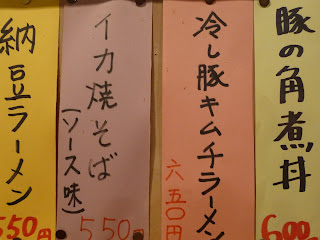 豚の角煮丼
600
冷し豚キムチラーメン
六五〇円
イカ焼そば
(ソース味)
550円
納豆ラーメン
550円